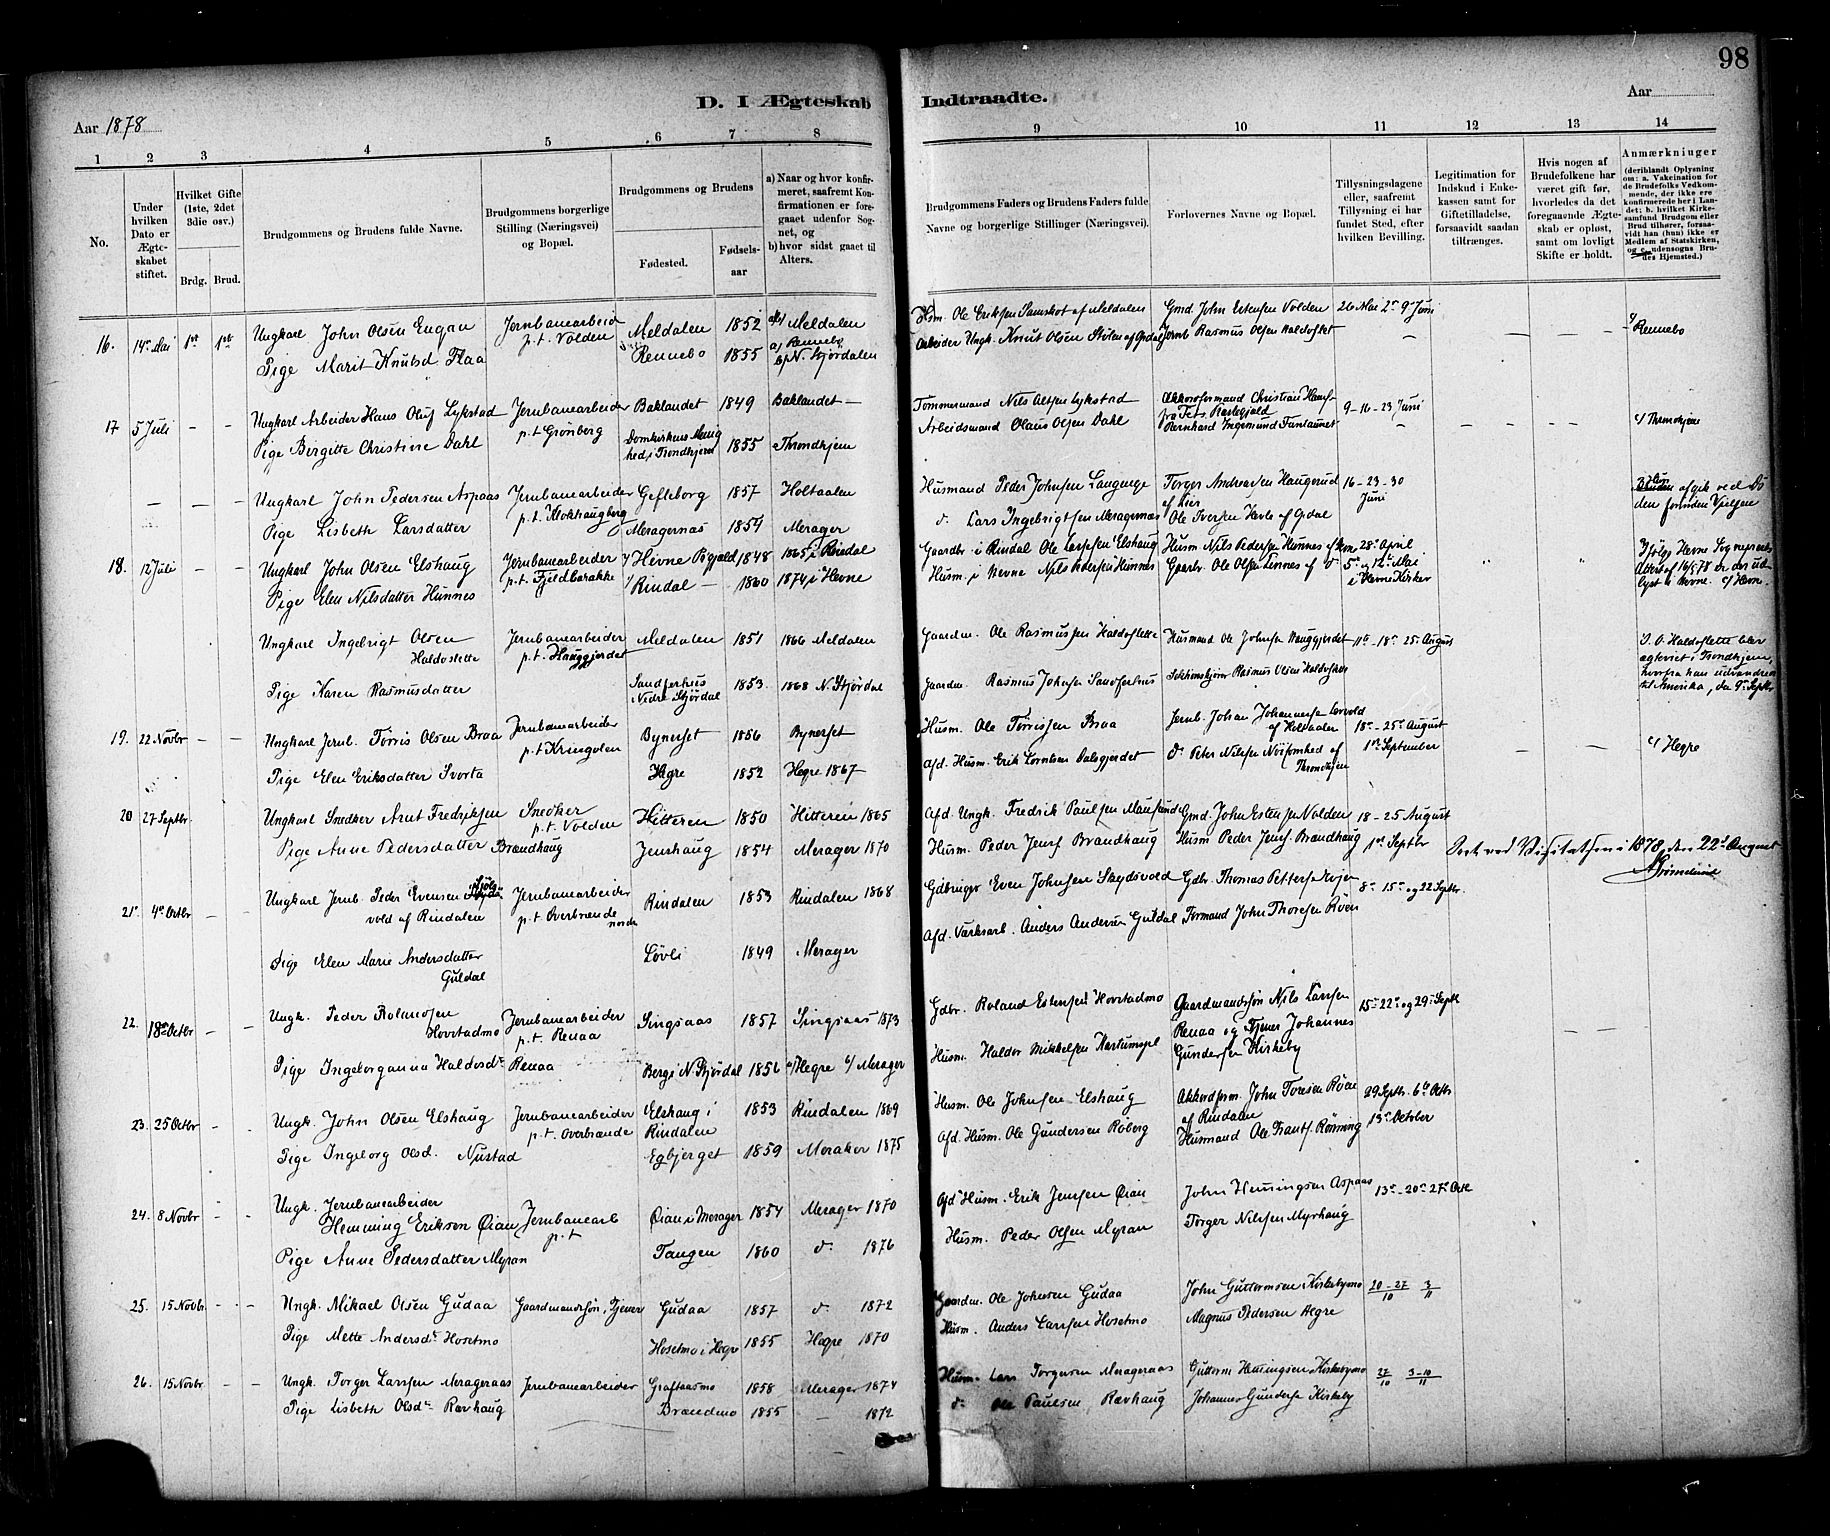 98
D. I Ægteskab Indtraadte.
Aar 1878
Aar
1 2 3 4 5 6 7 8 9 10 11 12 13 14
No.
Under hvilken Dato er Ægteskabet stiftet.
Hvilket Gifte (1ste, 2det 3die osv.)
Brdg. Brud.
Brudgommens og Brudens fulde Navne.
Brudgommens borgerlige Stilling (Næringsvei) og Bopæl.
Brudgommens og Brudens
Fødested.
Fødsels-aar
a) Naar og hvor konfirmeret, saafremt Konfirmationen er foregaaet udenfor Sognet, og
b) hvor sidst gaaet til Alters.
Brudgommens Faders og Brudens Faders fulde Navne og borgerlige Stillinger (Næringsvei).
Forlovernes Navne og Bopæl.
Tillysningsdagene eller, saafremt Tillysning ei har fundet Sted, efter hvilken Bevilling.
Legitimation for Indskud i Enkekassen samt for Giftetilladelse, forsaavidt saadan tiltrænges.
Hvis nogen af Brudefolkene har været gift før, hvorledes da det foregaaende Ægteskab er opløst, samt om lovligt Skifte er holdt.
Anmærkninger
(deriblandt Oplysning om: a. Vakcination for de Brudefolks Vedkommende, der ikke ere konfirmerede her i Landet; b. hvilket Kirkesamfund Brudgom eller Brud tilhører, forsaavidt han (hun) ikke er Medlem af Statskirken, og c. udensogns Brudes Hjemsted.)
16. 14de Mai 1st 1st Ungkarl John Olsen Engan Jernbanearbeid p.t. Volden Meldalen 1852 Meldalen Hsm. Ole Eriksen af Meldalen Gmd. John Estensen Volden 26 Mai 2. 9 Juni
Pige Marit Knutsd Flaa Rennebo 1855 a) Rennebo b) N. Stjørdalen Arbeider Ungk. Knut Olsen af Opdal Jernb. Rasmus Olsen c/ Rennebo
17 5 Juli - - Ungkarl Arbeider Hans Oluf Lykstad Jernbanearbeider p.t. Grønberg Baklandet 1849 Baklandet - Tømmermand Nils Olsen Lykstad Akkordformand Christian 9-16-23 Juni
Pige Birgitte Christine Dahl Domkirkens Menighed i Trondhjem 1855 Throndhjem Arbeidsmand Olaus Olsen Dahl Bernhard Ingemund c/ Throndhjem
- - - Ungkarl John Pedersen Aspaas Jernbanearbeider p.t. Klokhaugberg Gefleborg 1857 Holtaalen Husmand Peder Johnsen Langmyr Torger Andreassen Haugerud af Lier 16-23-30 Juni
Pige Lisbeth Larsdatter Meragernæs 1854 Merager d. Lars Ingebrigtsen Meragernæs Ole Iversen Hevle af Opdal Bruden afgik ved Døden forinden Vielsen
18. 12 Juli - - Ungkarl John Olsen Elshaug Jernbanearbeider p.t. Fjeldbarakke Hevne Pgjæld 1848 1865 i Rindal Gaardbr. i Rindal Ole Larssen Elshaug Husm Nils Pedersen Hunnes af Hevne 28de April
Pige Elen Nilsdatter Hunnes Rindal - 1860 1874 i Hevne Husm. i Hevne Nils Pedersen Hunnes Gaarbr. Ole Olsen af d 5te og 12te Mai i Hevne Kirker
Ifølge Hevne Sognepræsts Attest af 16/5 78 er der udlyst i Hevne. c/ Hevne.
Ungkarl Ingebrigt Olsen Haldoslette Jernbanearbeider p.t. Hauggjerdet Meldalen 1851 1866 Meldalen Gaardm. Ole Rasmussen Haldoslette Husmand Ole Johnsen Hauggjerdet 11te-18de 25 August
Pige Karen Rasmusdatter Sandferhus Nedre Stjørdal 1853. 1868 N. Stjørdal Gaardm. Rasmus Johnsen Sandferhus Rasmus Olsen
I. O. Haldoslette blev ægteviet i Trondhjem, hvorfra han udvandrede til Amerika, den 9de Septbr
19. 22 Novbr - - Ungkarl Jernb. Tørris Olsen Braa Jernbanearbeider p.t. Kringolen Byneset 1856 Byneset Husm. Ole Tørrissen Braa Jernb. Johan Johannessen af Holtaalen 18de-25de August
Pige Elen Eriksdatter Svorta Hegre 1852 Hegre 1867 Afd. Husm. Erik Lorntsen Dalsgjerdet d. Peter Nilsen Nøisomhed af Throndhjem 1ste September c/ Hegre
20 27 Septbr. Ungkarl Snedker Arnt Fredriksen Snedker p.t. Volden Hitteren 1850 Hitteren 1865 Afd. Ungk. Fredrik Paulsen Mausund Gmd. John Estensen Volden 18-25 August
Pige Anne Pedersdatter Brændhaug Jenshaug 1854 Merager 1870 Husm. Peder Jensf. Brændhaug Husm Peder Jensf. Brændhaug 1ste Septbr
Seet ved Visitatsen i 1878, den 22de August
21. 4de Octbr - - Ungkarl Jernb. Peder Evensen Skydsvold af Rindalen Jernbanearbeider p.t. Overbrænde Rindalen 1853 Rindalen 1868 Gdbruger Even Johnsen Skydsvold Gdbr. Thomas Pettersf. 8de 15de og 22 Septbr.
Pige Elen Marie Andersdatter Guldal Løvli 1849 Merager Afd. Værksarb. Anders Andersen Guldal Formand John Thoresen Røen
22. 18de Octbr - - Ungk. Peder Rolandsen Hovstadmo Jernbanearbeider p.t. Renaa Singsaas 1857 Singsaas 1873 Gdbr. Roland Estensen Hovstadmo Gaardmandssøn Nils Larssen Renaa og Tjener Johannes Gundersen Kirkeby 15de 22de og 29de Septb
Pige Ingeborganna Haldorsdt. Renaa Berg i N. Stjørdal 1856 a) Hegre b) Merager Husm. Haldor Mikkelsen
23. 25 Octbr - - Ungk. John Olsen Elshaug Jernbanearbeider p.t. Overbrænde Elshaug i Rindalen 1853 Rindalen 1869 Husm. Ole Johnsen Elshaug Akkordform. John Toresen Røen af Rindalen 29 Septbr. 6te Octbr
Pige Ingeborg Olsd. Nustad Egbjerget 1859 Meraker 1875 Afd. Husm. Ole Gundersen Røberg Husmand Ole Frantsf. Rønning 13de October
24. 8 Novbr - - Ungk. Jernbanearbeider Hemming Eriksen Øian Jernbanearb p.t. Øian i Merager 1854 Merager 1870 Afd Husm. Erik Jensen Øian John Hemmingsen Aspaas 13de-20de 27de Octb
Pige Anne Pedersdatter Myran Tangen 1860 d. 1876 Husm. Peder Olsen Myran Torger Nilsen Myrhaug
25. 15 Novbr. - - Ungk. Mikael Olsen Gudaa Gaardmandssøn, Tjener Gudaa 1857 d. 1872 Gaardm. Ole Johnsen Gudaa John Guttormsen Kirkebymo 20-27/10 3/11
Pige Mette Andersdt. Hosetmo Hosetmo i Hegre 1855 Hegre 1870 Husm. Anders Larssen Hosetmo Magnus Pedersen Hegre
26. 15 Novbr - - Ungk. Torger Larssen Merageraas Jernbanearbeider Graftaasmo 1858 Merager 1874 Husm. Lars Torgersen Merageraas Guttorm Hemmingsen Kirkebymo 27/10 3-10/11
Pige Lisbeth Olsdt. Rævhaug Brændmo 1855 - 1872 d. Ole Paulsen Rævhaug Johannes Gundersen Kirkeby